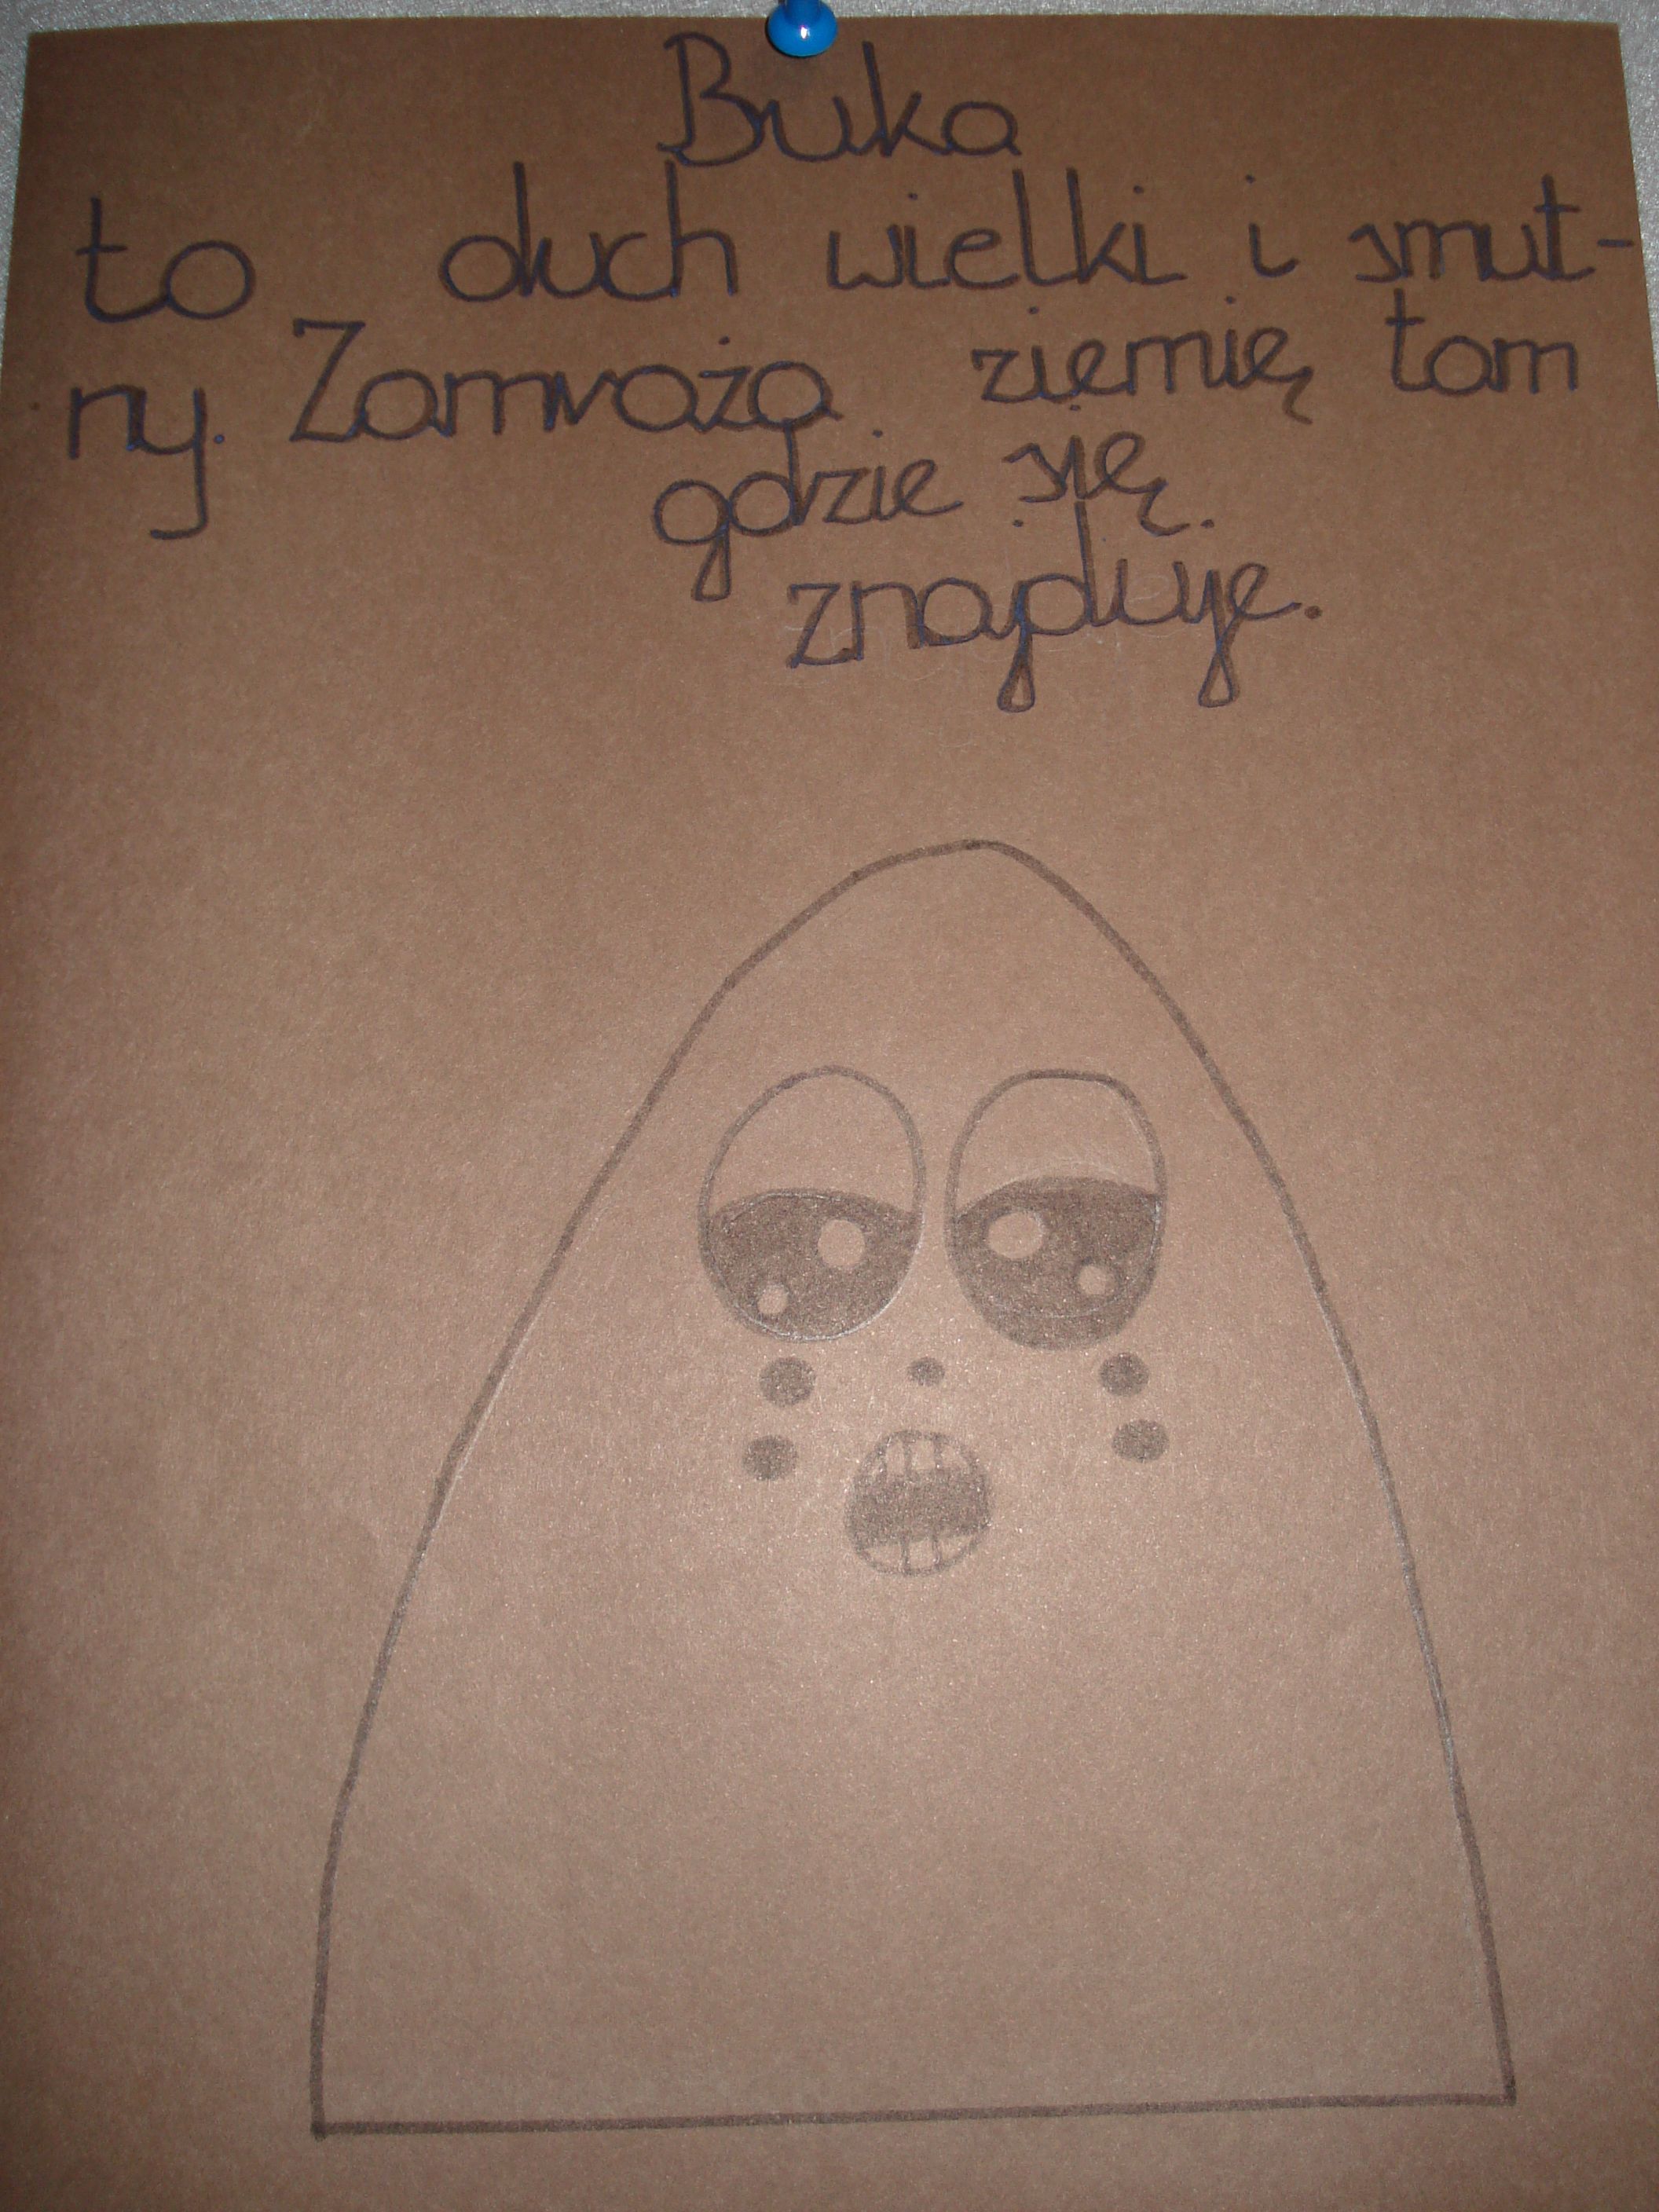 Buka
to duch wielki i smut-
ny. Zamraża ziemię tam
gdzie się
znajduje.